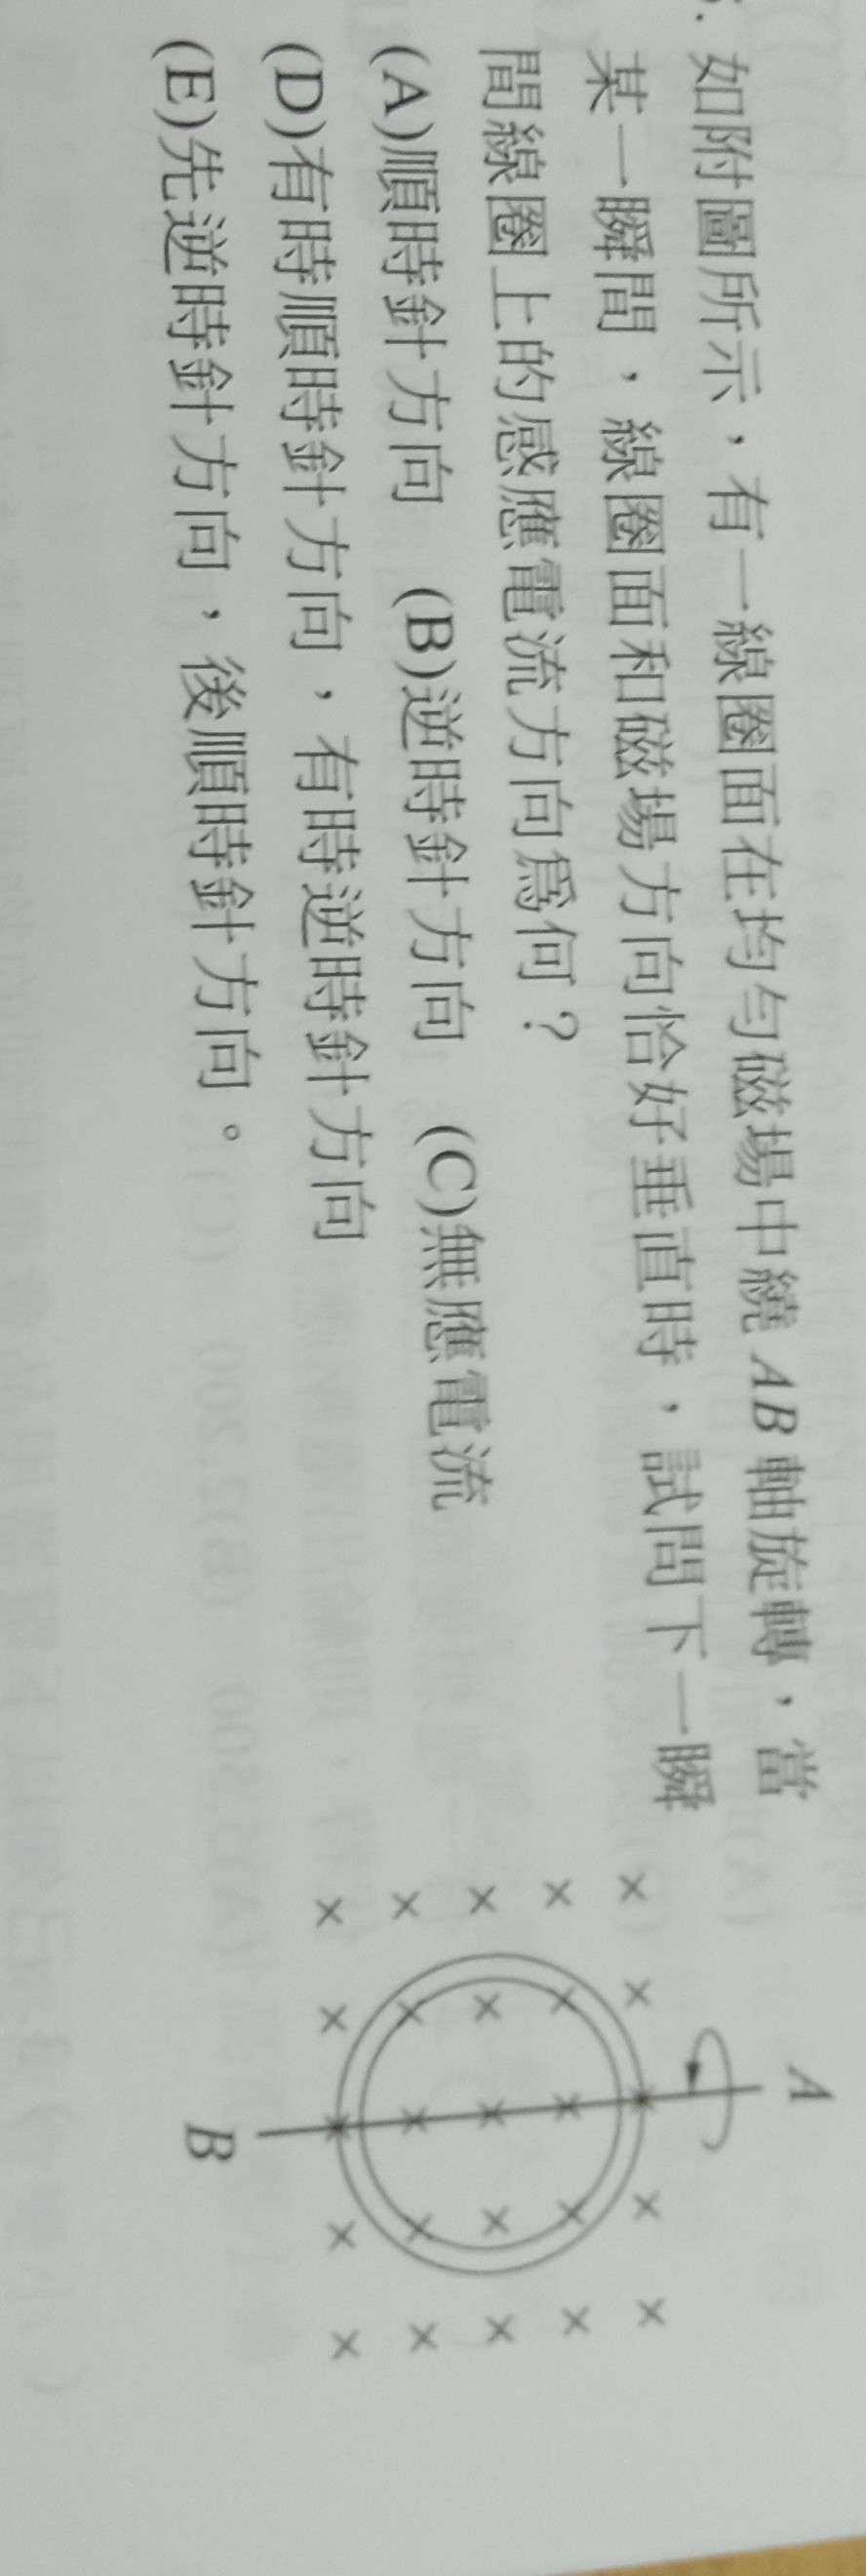 . 如附圖所示，有一線圈面在均勻磁場中繞 AB 軸旋轉，當
某一瞬間，線圈面和磁場方向恰好垂直時，試問下一瞬
間線圈上的感應電流方向爲何？
(A)順時針方向 (B)逆時針方向 (C)無應電流
(D)有時順時針方向，有時逆時針方向
(E)先逆時針方向，後順時針方向。
A
B